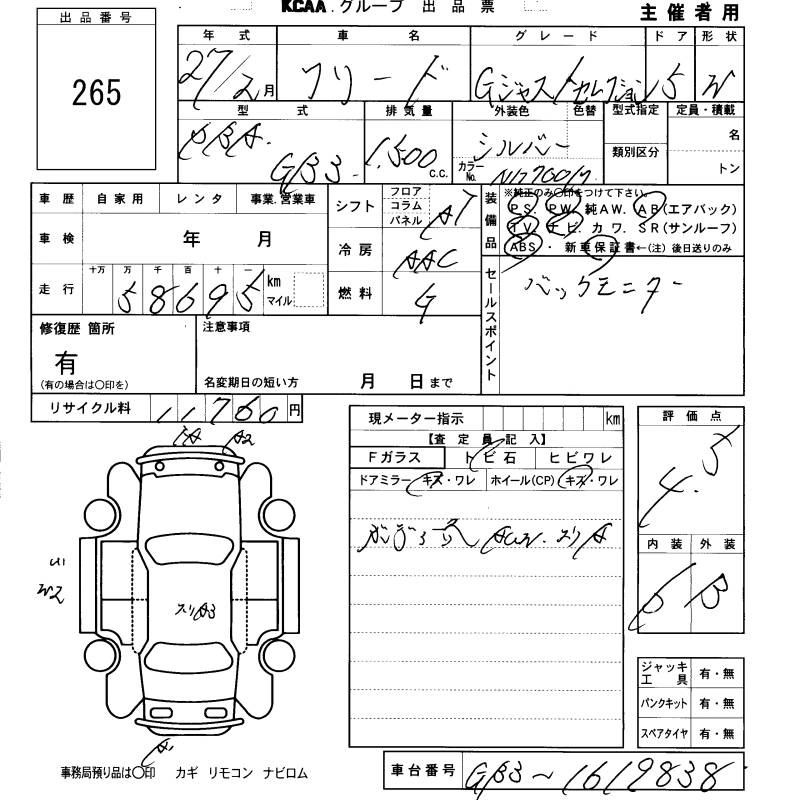 KCAA.グループ 出品票
主催者用
出品番号
265
年式 車名 グレード ドア 形状
27/2月 フリード Gジャストセレクション 5 W
型式 排気量 外装色 色替 型式指定 定員・積載
DBA. GB3 1,500 c.c. シルバー カラーNo. NH700M 類別区分 名 トン
車歴 自家用 レンタ 事業.営業車
車検 年 月
走行 十万 万 千 百 十 一
58695 km マイル
シフト フロア コラム パネル AT
冷房 AAC
燃料 G
装備品 ※純正のみ○印をつけて下さい。
PS. PW. 純AW. AB(エアバック)
TV. ナビ. カワ. SR(サンルーフ)
ABS ・ 新車保証書←(注)後日送りのみ
セールスポイント バックモニター
修復歴 箇所
有
(有の場合は○印を)
注意事項
名変期日の短い方 月 日まで
リサイクル料 11760円
現メーター指示 km
【査定員記入】
Fガラス トビ石 ヒビワレ
ドアミラー キズ・ワレ ホイール(CP) キズ・ワレ
評価点
4.5
内装 外装
B
A2
W2
スリA3
A
ジャッキ工具 有・無
パンクキット 有・無
スペアタイヤ 有・無
事務局預り品は○印 カギ リモコン ナビロム
車台番号 GB3~1619838